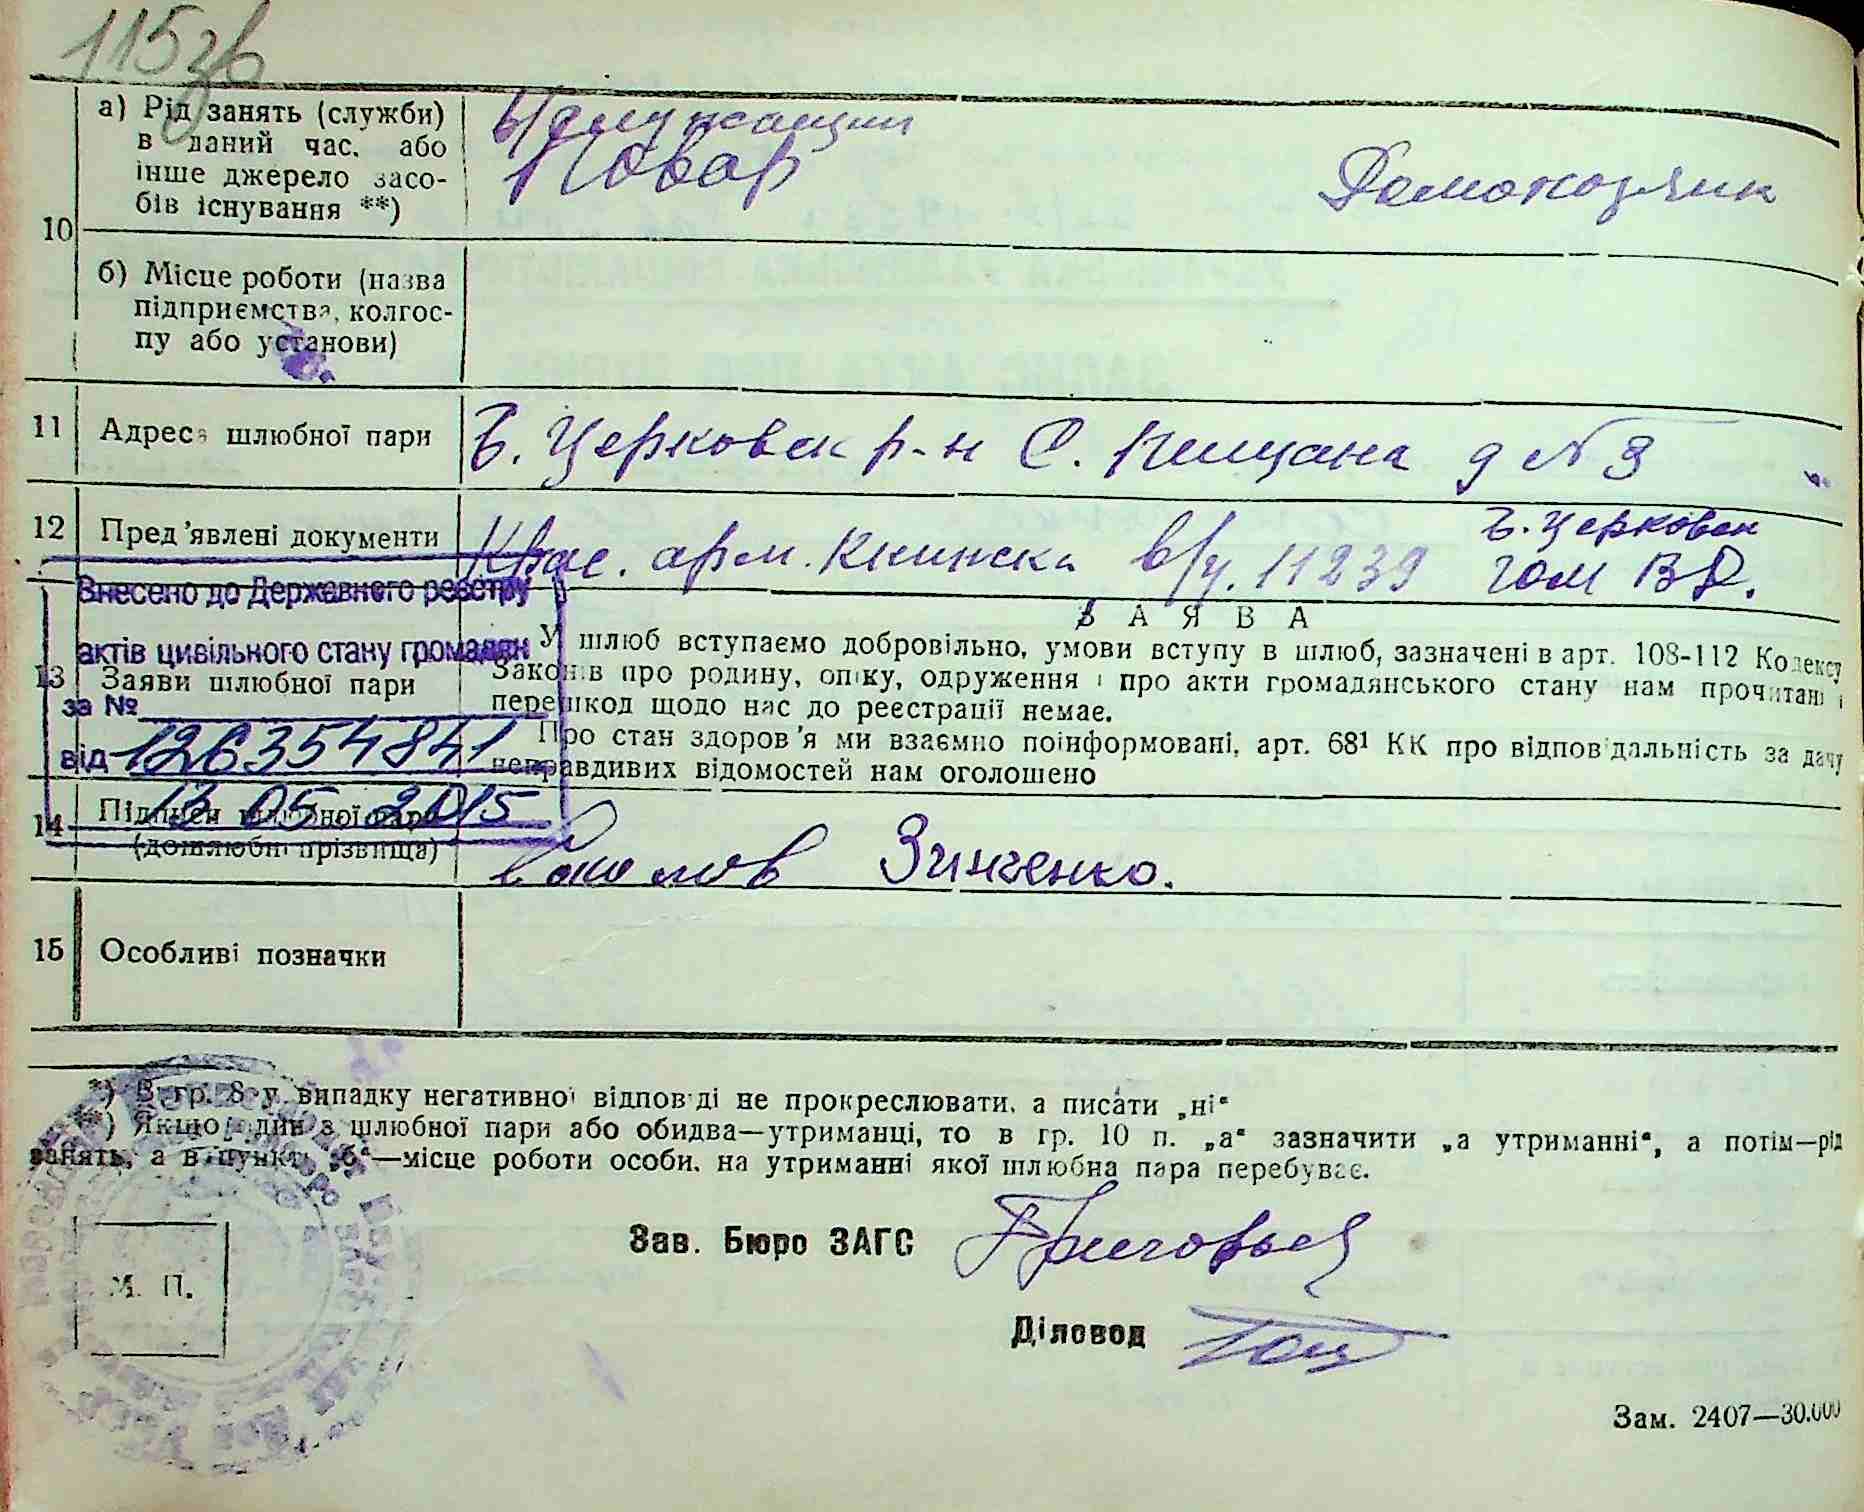 115зв
10
а) Рід занять (служби) в даний час, або інше джерело засобів існування **)
Повар
б) Місце роботи (назва підприємства, колгоспу або установи)
11 Адреса шлюбної пари
Б. Церковск р-н С. Пищана д № 3
12 Пред'явлені документи
Крас. арм. Книжска в/ч. 11239
Б. Церковск
Внесено до Державного реєстру
актів цивільного стану громадян
за № 126354841
від 13 05 2015
ЗАЯВА
13 Заяви шлюбної пари
У шлюб вступаємо добровільно, умови вступу в шлюб, зазначені в арт. 108-112 Кодексу
Законів про родину, опіку, одруження і про акти громадянського стану нам прочитані і
перешкод щодо нас до реєстрації немає.
Про стан здоров'я ми взаємно поінформовані, арт. 68¹ КК про відповідальність за дачу
неправдивих відомостей нам оголошено
14 Підписи шлюбної пари
(дошлюбні прізвища)
Зинченко.
15 Особливі позначки
*) В гр. 8 у випадку негативної відповіді не прокреслювати, а писати „ні“
**) Якщо один з шлюбної пари або обидва—утриманці, то в гр. 10 п. „а“ зазначити „а утриманні“, а потім—рід
занять, а в пункті „б“—місце роботи особи, на утриманні якої шлюбна пара перебуває.
М. П.
Зав. Бюро ЗАГС
Діловод
Зам. 2407—30.000